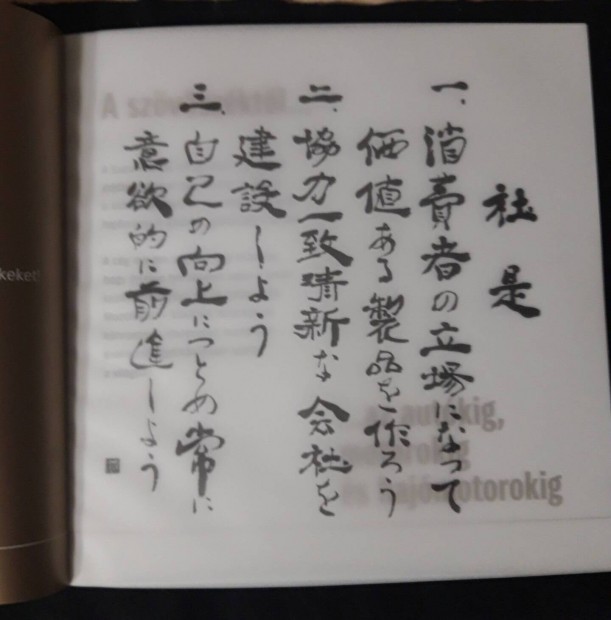 社是
一、消費者の立場になって
価値ある製品を作ろう
二、協力一致清新な会社を
建設しよう
三、自己の向上につとめ常に
意欲的に前進しよう
autókig,
és hajómotorokig